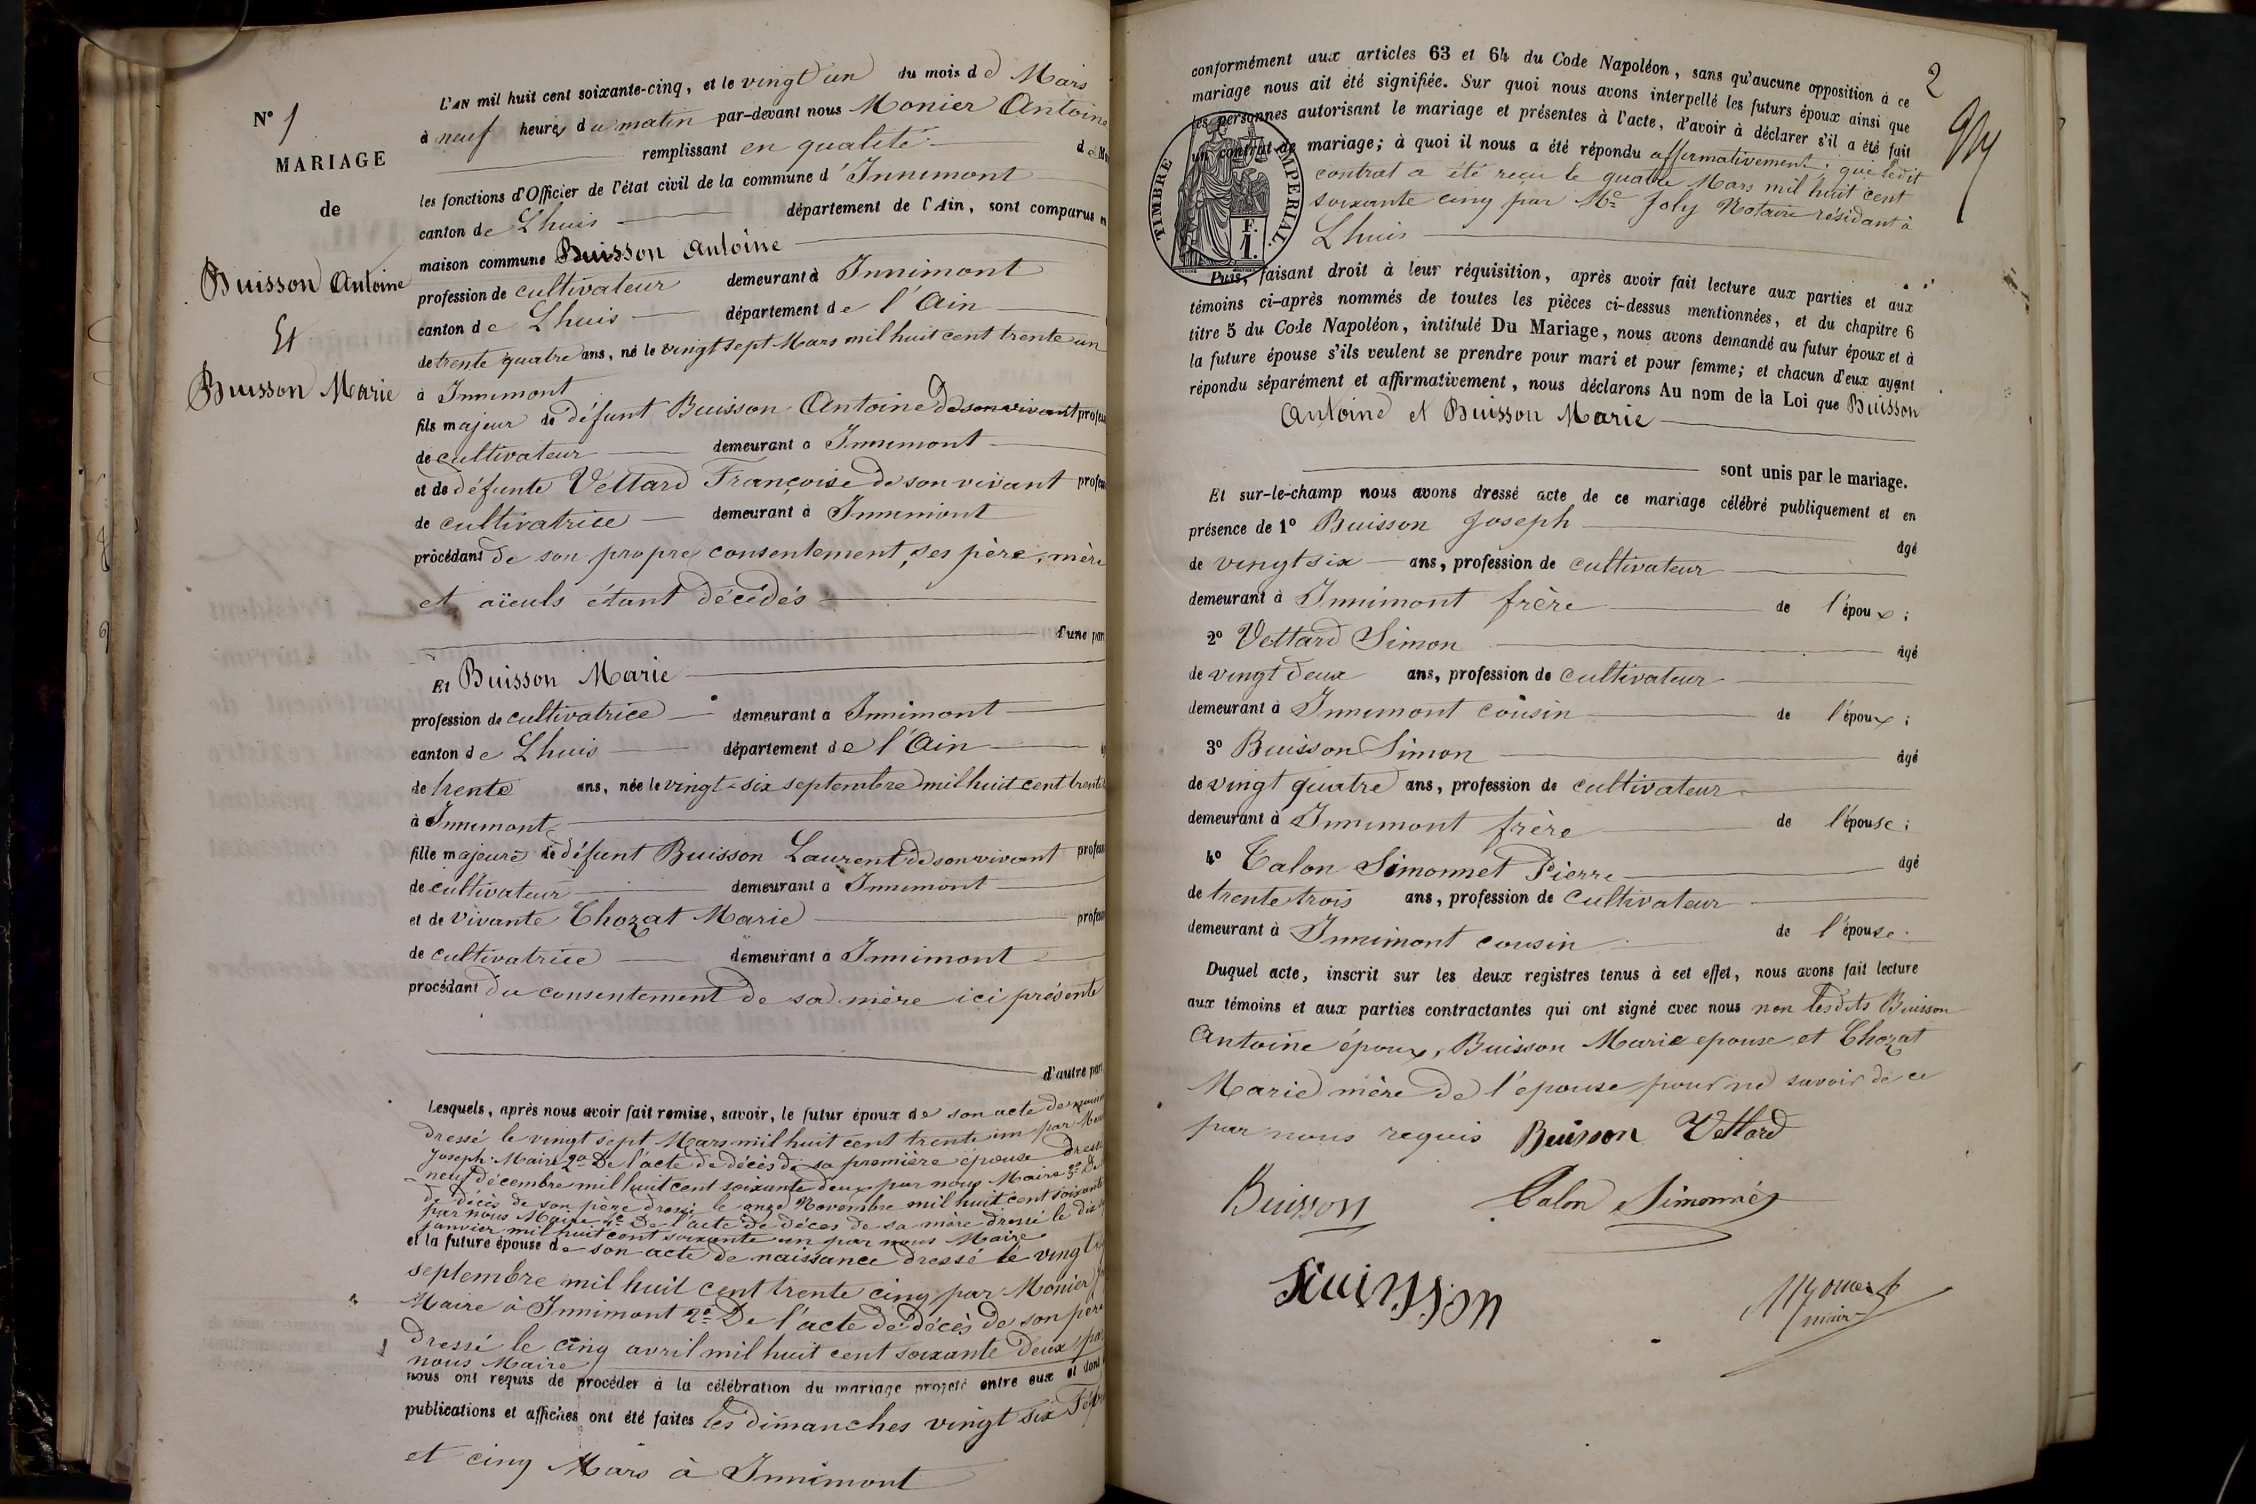 N° 1
MARIAGE
de
Buisson Antoine
Et
Buisson Marie
L'AN mil huit cent soixante-cinq, et le vingt un du mois de Mars
à neuf heures du matin par-devant nous Monier Antoine
remplissant en qualité de
les fonctions d'Officier de l'état civil de la commune d'Innimont
canton de Lhuis département de l'Ain, sont comparus en
maison commune Buisson Antoine
profession de cultivateur demeurant à Innimont
canton de Lhuis département de l'Ain
de trente quatre ans, né le vingt sept Mars mil huit cent trente un
à Innimont
fils majeur de défunt Buisson Antoine de son vivant profess
de cultivateur demeurant à Innimont
et de défunte Vettard Françoise de son vivant profess
de cultivatrice demeurant à Innimont
procédant de son propre consentement, ses père, mère
et aïeuls étant décédés
d'une part
Et Buisson Marie
profession de cultivatrice demeurant à Innimont
canton de Lhuis département de l'Ain
de trente ans, née le vingt-six septembre mil huit cent trente
à Innimont
fille majeure de défunt Buisson Laurent de son vivant profess
de cultivateur demeurant à Innimont
et de vivante Chozat Marie profess
de cultivatrice demeurant à Innimont
procédant du consentement de sa mère ici présente
d'autre part
Lesquels, après nous avoir fait remise, savoir, le futur époux de son acte de
dressé le vingt sept Mars mil huit cent trente un par
Joseph Maire 2° De l'acte de décès de sa première épouse dressé
neuf décembre mil huit cent soixante deux par nous Maire 3° De
de décès de son père dressé le onze Novembre mil huit cent soixante
par nous Maire 4° De l'acte de décès de sa mère dressé le dix
janvier mil huit cent soixante un par nous Maire
et la future épouse de son acte de naissance dressé le vingt
septembre mil huit cent trente cinq par Monier
Maire à Innimont 2° De l'acte de décès de son père
dressé le cinq avril mil huit cent soixante deux par
nous Maire
nous ont requis de procéder à la célébration du mariage projeté entre eux et dont
publications et affiches ont été faites les dimanches vingt six Fév
et cinq Mars à Innimont
2
conformément aux articles 63 et 64 du Code Napoléon, sans qu'aucune opposition à ce
mariage nous ait été signifiée. Sur quoi nous avons interpellé les futurs époux ainsi que
les personnes autorisant le mariage et présentes à l'acte, d'avoir à déclarer s'il a été fait
un contrat de mariage; à quoi il nous a été répondu affirmativement; que ledit
contrat a été reçu le quatre Mars mil huit cent
soixante cinq par Me Joly Notaire résidant à
Lhuis
TIMBRE IMPERIAL.
F.
1.
Puis, faisant droit à leur réquisition, après avoir fait lecture aux parties et aux
témoins ci-après nommés de toutes les pièces ci-dessus mentionnées, et du chapitre 6
titre 5 du Code Napoléon, intitulé Du Mariage, nous avons demandé au futur époux et à
la future épouse s'ils veulent se prendre pour mari et pour femme; et chacun d'eux ayant
répondu séparément et affirmativement, nous déclarons Au nom de la Loi que Buisson
Antoine et Buisson Marie
sont unis par le mariage.
Et sur-le-champ nous avons dressé acte de ce mariage célébré publiquement et en
présence de 1° Buisson Joseph âgé
de vingt six ans, profession de cultivateur
demeurant à Innimont frère de l'époux;
2° Vettard Simon âgé
de vingt deux ans, profession de cultivateur
demeurant à Innimont cousin de l'époux;
3° Buisson Simon âgé
de vingt quatre ans, profession de cultivateur
demeurant à Innimont frère de l'épouse;
4° Talon Simonnet Pierre âgé
de trente trois ans, profession de cultivateur
demeurant à Innimont cousin de l'épouse.
Duquel acte, inscrit sur les deux registres tenus à cet effet, nous avons fait lecture
aux témoins et aux parties contractantes qui ont signé avec nous non lesdits Buisson
Antoine époux, Buisson Marie epouse et Chozat
Marie mère de l'epouse pour ne savoir de ce
par nous requis Buisson Vettard
Buisson Talon Simonnet
Buisson Monier
maire